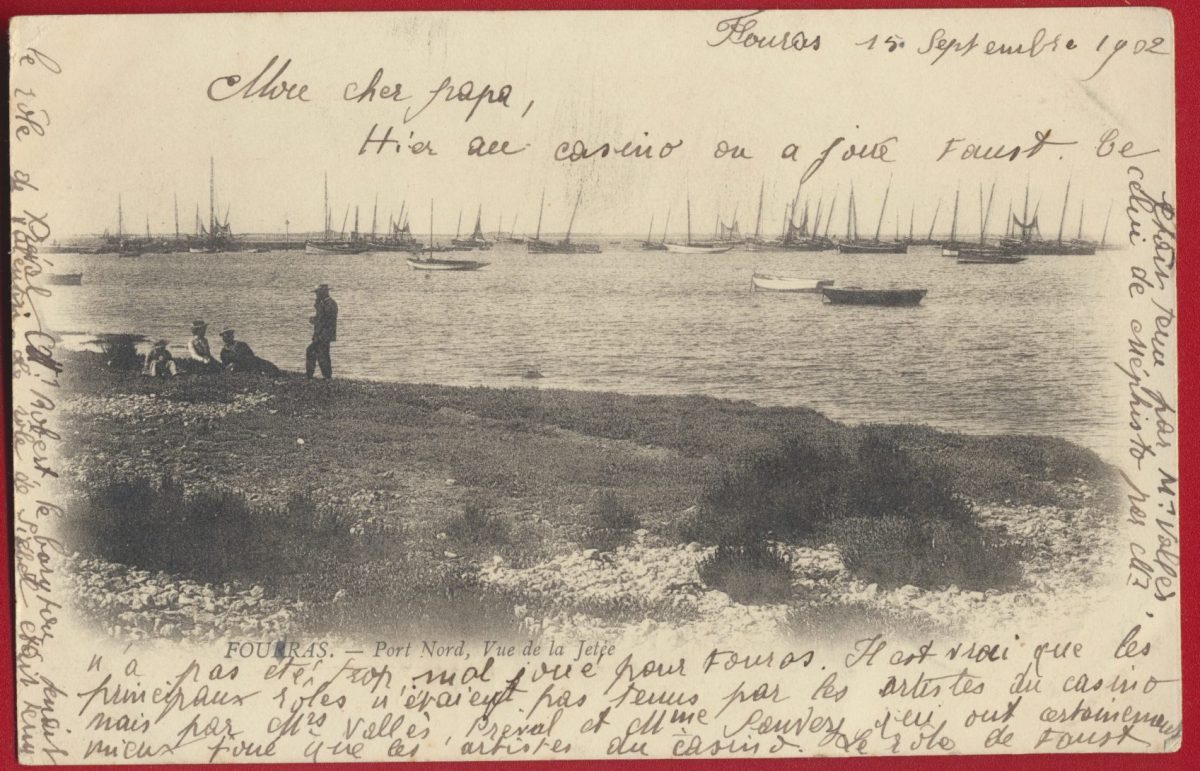 Fouras 15 Septembre 1902
Mon cher papa,
Hier au casino on a joué Faust. Ce
n'a pas été trop mal joué pour Fouras. Il est vrai que les
principaux rôles n'étaient pas tenus par les artistes du casino
mais par Mrs Vallès, Preval et Mme qui ont certainement
mieux joué que les artistes du casino. Le rôle de Faust
était tenu par Mr Vallès,
celui de Méphisto par Mr
le rôle de
Mr Robert le baryton tenait
le rôle de était tenu
FOURRAS. — Port Nord, Vue de la Jetée